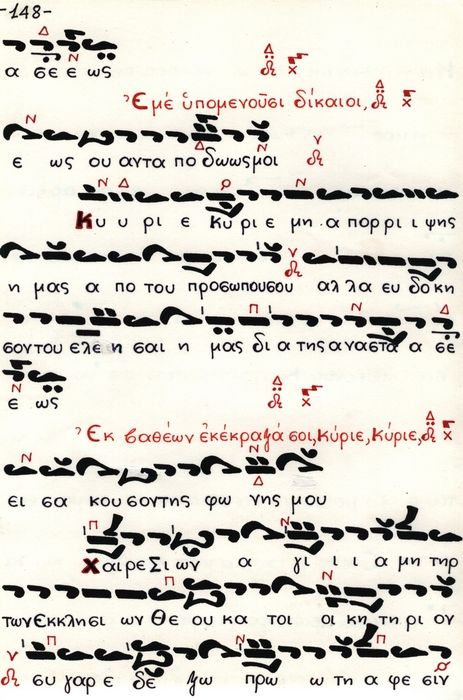 -148-
α σε ε ως
Ἐμέ ὑπομενοῦσι δίκαιοι,
ε ως ου αντα πο δωωςμοι
Κυ υ ρι ε κυ ρι ε μη α πορ ρι ψης
η μας α πο του προσωπουσου αλ λα ευ δο κη
σοντου ελε η σαι η μας δι α της αναστα α σε
ε ως
Ἐκ βαθέων ἐκέκραξά σοι, Κύριε, Κύριε,
ει σα κου σοντης φω νης μου
Χαιρε Σι ων α γι ι ι α μη τηρ
των Εκκλησι ων Θε ου κα τοι οι κη τη ρι ον
συ γαρ ε δε ξω πρω ω τη α φε σιν